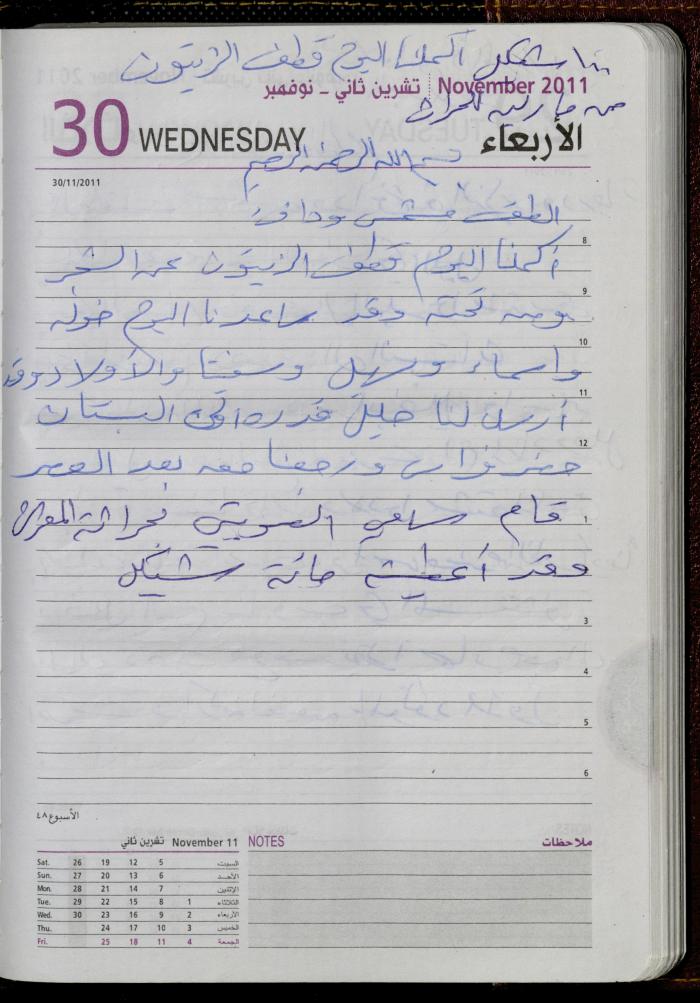 شيكل أكملنا اليوم قطف الزيتون
November 2011 تشرين ثاني - نوفمبر
للحراث
30 WEDNESDAY الأربعاء
بسم الله الرحمن الرحيم
30/11/2011
الطقس مشمس ودافئ
8
أكملنا اليوم قطف الزيتون عن الشجر
9
ومن تحته وقد ساعدنا اليوم خولة
10
واسماء وسهيل والأولاد وقد
11
أرسل لنا خليل قدره إلى البستان
12
حضر فراس ورجعنا معه بعد العصر
1
قام سامي بحراثة
وقد أعطيته مائة شيكل
3
4
5
6
الأسبوع ٤٨
November 11 تشرين ثاني
NOTES ملاحظات
Sat. 26 19 12 5 السبت
Sun. 27 20 13 6 الأحد
Mon. 28 21 14 7 الإثنين
Tue. 29 22 15 8 1 الثلاثاء
Wed. 30 23 16 9 2 الأربعاء
Thu. 24 17 10 3 الخميس
Fri. 25 18 11 4 الجمعة